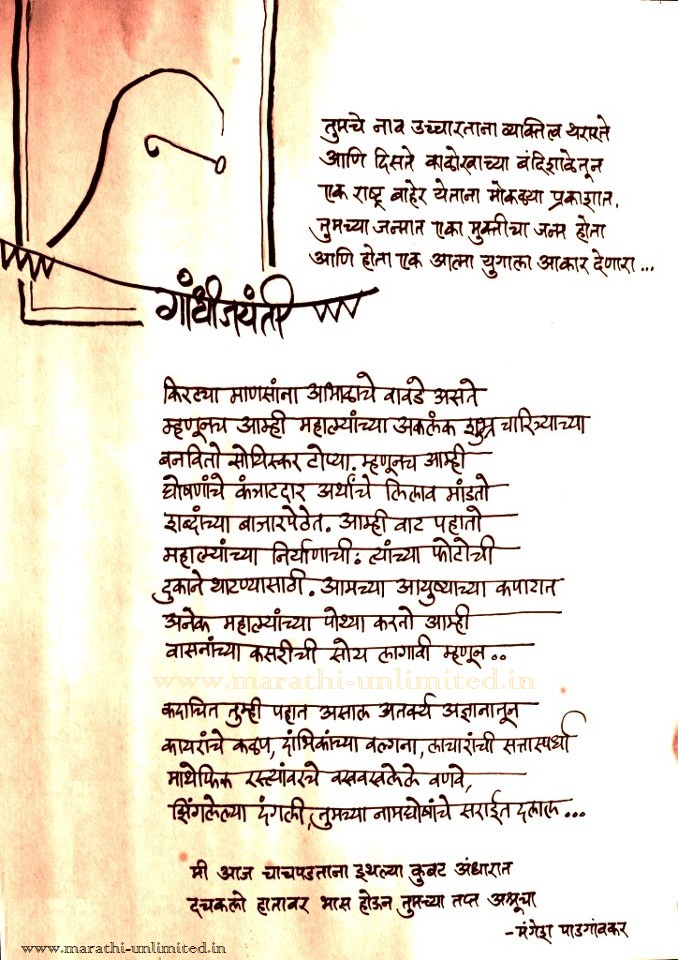 तुमचे नाव उच्चारताना व्यक्तित्व थरारते
आणि दिसते काळोखाच्या बंदिशाळेतून
एक राष्ट्र बाहेर येताना मोकळ्या प्रकाशात.
तुमच्या जन्मात एका मुक्तीचा जन्म होता
आणि होता एक आत्मा युगाला आकार देणारा ...
गांधीजयंती
किरट्या माणसांना आभाळाचे वावडे असते
म्हणूनच आम्ही महात्म्यांच्या अकलंक शुभ्र चारित्र्याच्या
बनवितो सोयिस्कर टोप्या. म्हणूनच आम्ही
घोषणांचे कंत्राटदार अर्थांचे लिलाव मांडतो
शब्दांच्या बाजारपेठेत. आम्ही वाट पहातो
महात्म्यांच्या निर्याणाची: त्यांच्या फोटोची
दुकाने थाटण्यासाठी. आमच्या आयुष्याच्या कपाटात
अनेक महात्म्यांच्या पोथ्या करतो आम्ही
वासनांच्या कसरीची सोय लागावी म्हणून ..
www.marathi-unlimited.in
कदाचित तुम्ही पहात असाल अतर्क्य अज्ञानातून
कायरांचे कळप, दांभिकांच्या वल्गना, लाचारांची सत्तास्पर्धा
माथेफिरू रस्त्यांवरचे वखवखलेले वणवे,
झिंगलेल्या दंगली, तुमच्या नामघोषांचे सराईत दलाल ...
मी आज चाचपडताना इथल्या कुबट अंधारात
दचकलो हातावर भास होऊन तुमच्या तप्त अश्रूचा
- मंगेश पाडगांवकर
www.marathi-unlimited.in